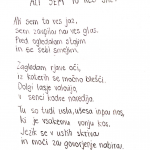 ALI SEM TO RES JAZ?
Ali sem to res jaz,
sem zaspian res glas.
Pred ogledalom stojim
in se sebi smejim.
Zagledam rjave oči,
iz katerih se močno blešči.
Dolgi lasje valovijo,
v senci kodre naredijo.
Tu so tudi usta, ušesa in pa nos,
ki je vsakemu vonju kos.
Jezik se v ustih skriva
in moči za govorjenje nabira.